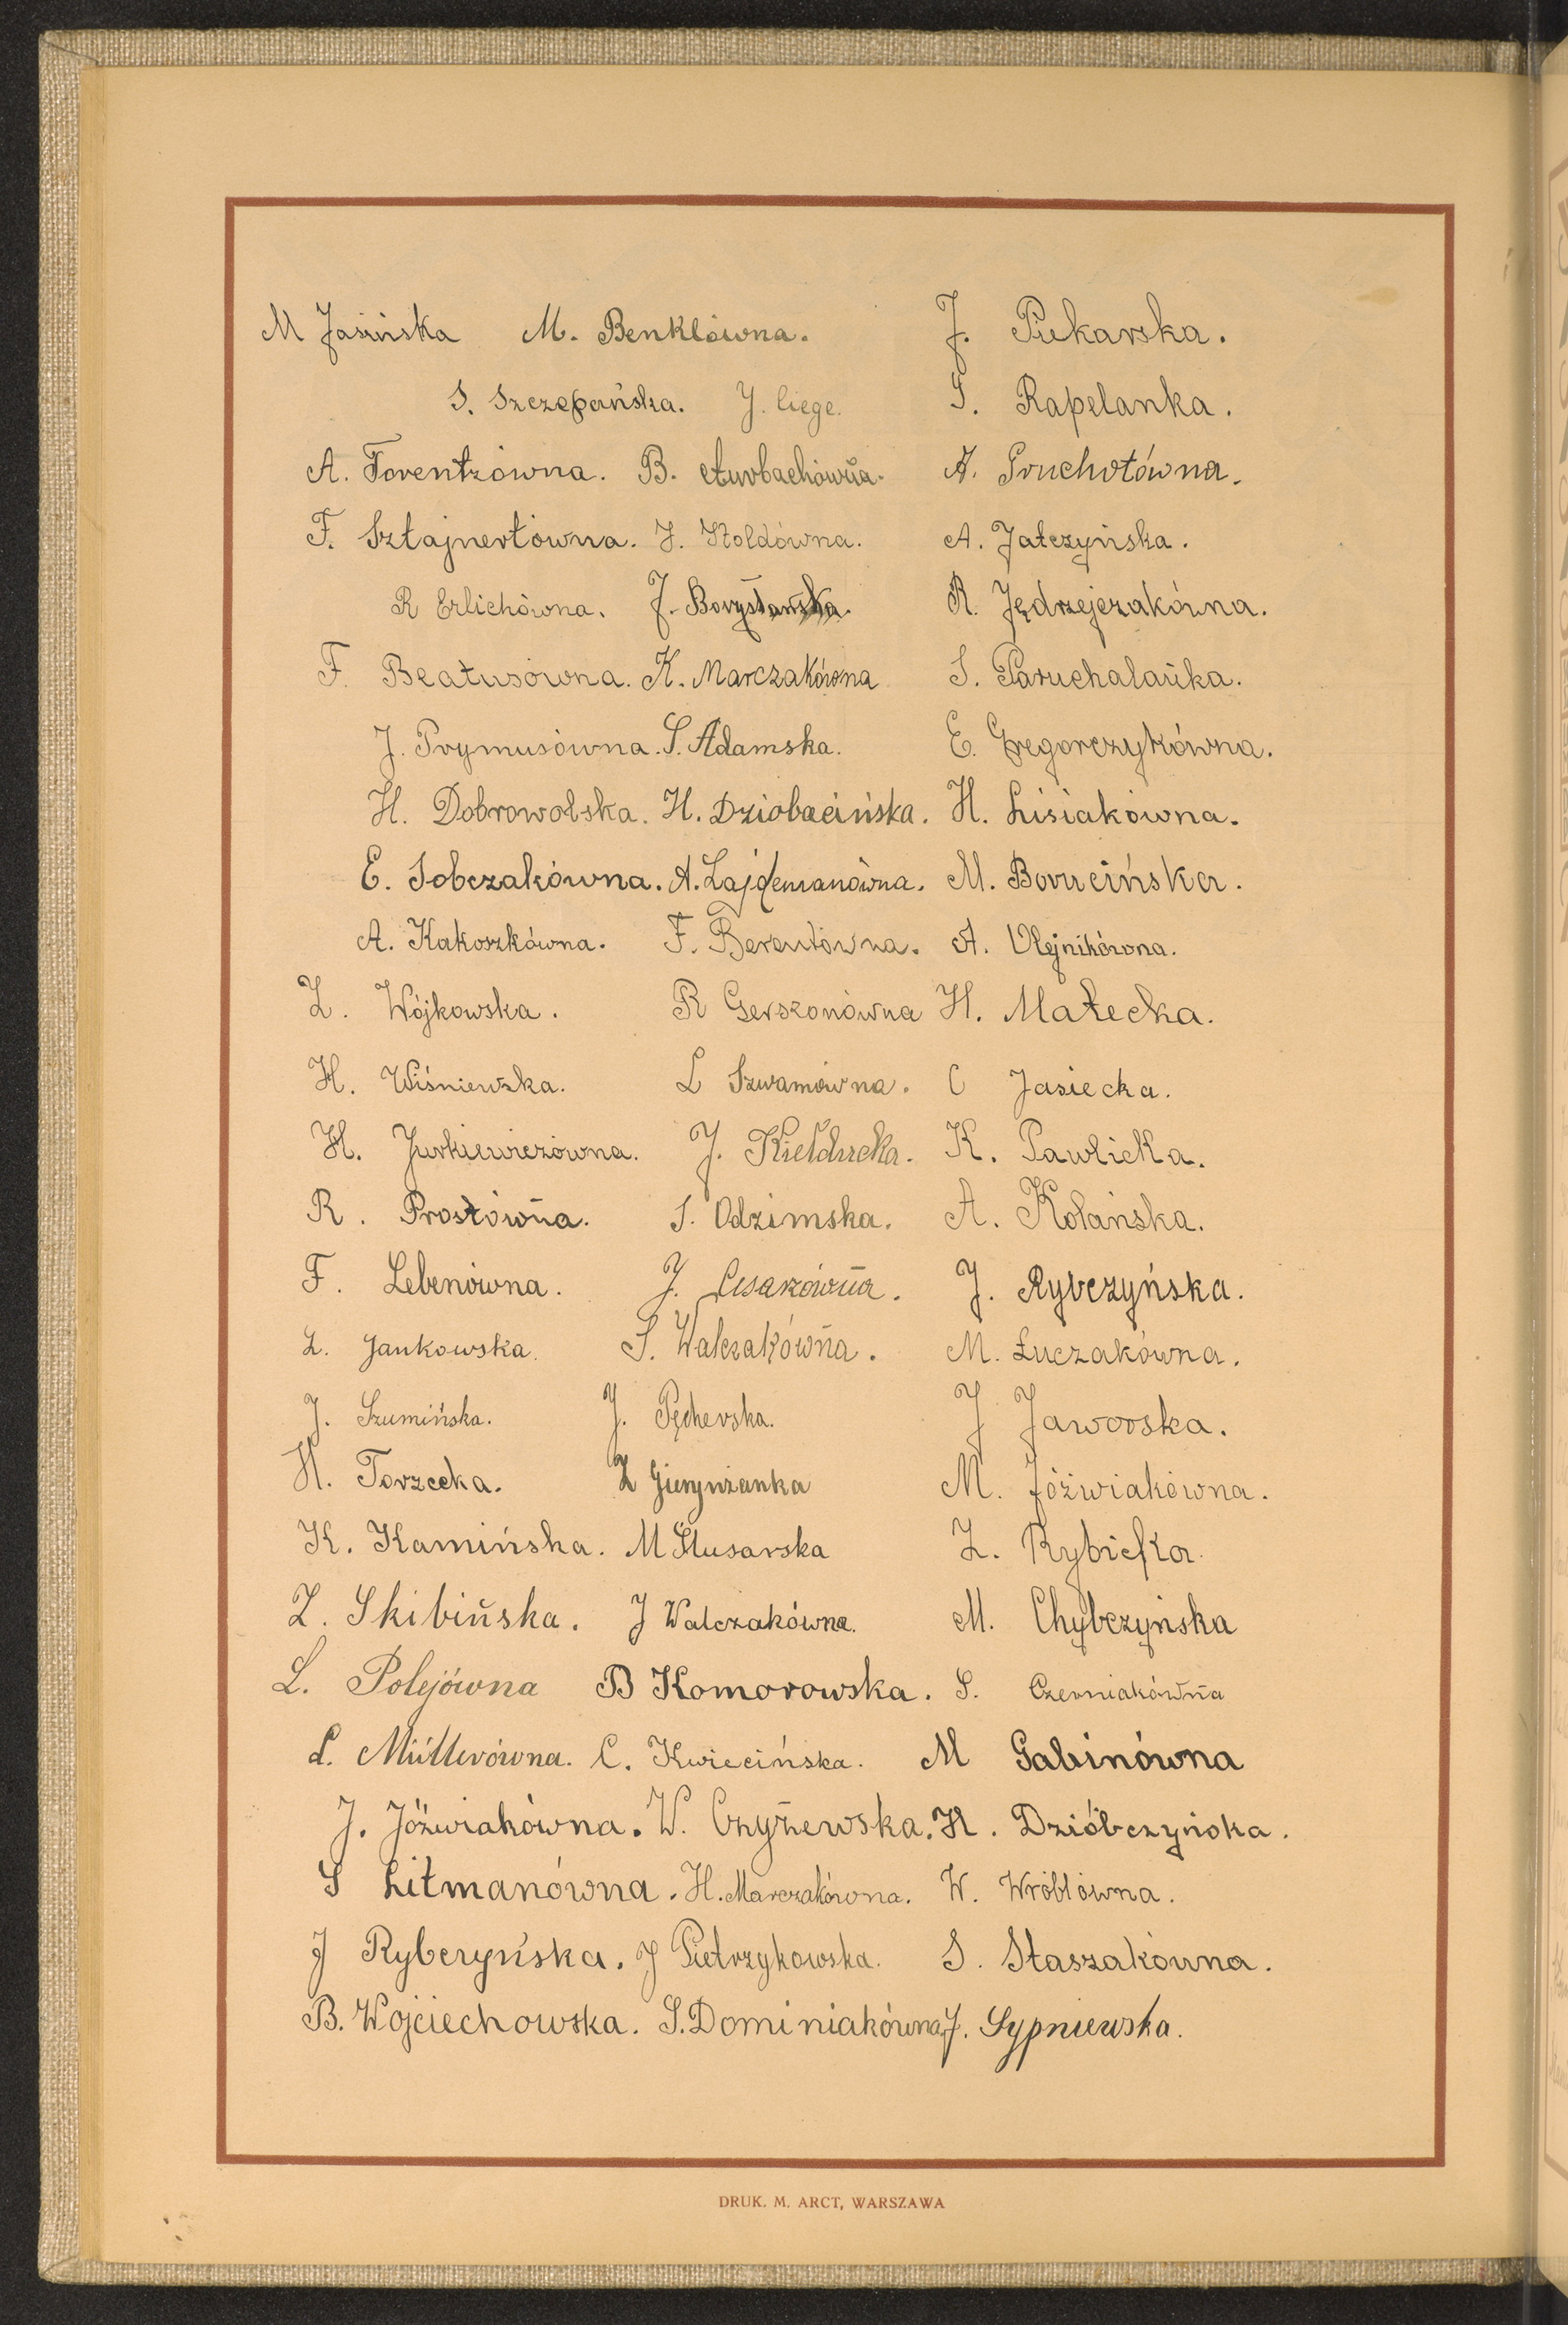 M Jasińska M. Benklówna. J. Piekarska.
S. Szczepańska. J. Ciege. S. Rapelanka.
A. Torentzówna. B. Aurbachówna. A. Pruchotówna.
F. Sztajnertówna. J. Stoldówna. A. Jatczyńska.
R Erlichówna. J. Borysławska. R. Jędrzejczakówna.
F. Beatusówna. K. Marczakówna S. Paruchalanka.
J. Prymusówna. S. Adamska. E. Gregorczykówna.
H. Dobrowolska. H. Dziobacińska. H. Lisiakówna.
E. Sobczakówna. A. Lajdemanówna. M. Borucińska.
A. Kakoszkówna. F. Berentówna. A. Olejnikówna.
Z. Wójkowska. R Gerszonówna H. Małecka.
H. Wiśniewska. L Szwamówna. C Jasiecka.
H. Jurkiewiczówna. J. Kiełducka. K. Pawlicka.
R. Prostówna. S. Odzimska. A. Kolańska.
F. Lebenówna. J. Cesarzówna. J. Rybczyńska.
Z. Jankowska. S. Walczakówna. M. Łuczakówna.
J. Szumińska. J. Pęcherska. J Jaworska.
H. Torzecka. Z Gierynżanka M. Jóźwiakówna.
K. Kamińska. M Ślusarska Z. Rybicka.
Z. Skibińska. J Walczakówna. M. Chybczyńska
L. Polejówna B Komorowska. S. Czerniakówna
L. Müllerówna. C. Kwiecińska. M Gabinówna
J. Jóźwiakówna. W. Czyżewska. H. Dzióbczyńska.
S Litmanówna. H. Marczakówna. W. Wróblówna.
J Rybczyńska. J Pietrzykowska. S. Staszakówna.
B. Wojciechowska. S. Dominiakówna. J. Sypniewska.
DRUK. M. ARCT, WARSZAWA